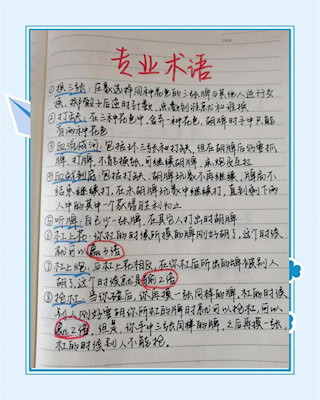 专业术语
①换三张：玩家选择同种花色的三张牌与其他人进行交
换，掷骰子后逆时针数，点数到谁就和谁换
②打缺：在三种花色中，舍弃一种花色，胡牌时手中只能
有两种花色
③血流成河：包括环三张和打缺，但在胡牌后仍要抓
牌、打牌，不能换张，可继续胡牌、点炮反立
④血战到底：包括打缺，胡牌玩家不再继续，牌局不
结束继续打，在未胡牌玩家中继续打，直到剩下两
人中的其中一个获得胜利为止
⑤听牌：自己少一张牌，在其它人打出时胡牌
⑥杠上花：你杠的时候所摸的牌刚好胡了，这个时候
就可以赢3倍
⑦杠上炮：与杠上花相反，在你杠后所出的牌被别人
胡了，这个时候就是输2倍
⑧抢杠：当你碰后，你再摸一张同样的牌，杠的时候
别人刚好要胡你所杠的牌时就可以抢杠，可以
赢2倍，但是，你手中三张同样的牌，之后再摸一张，
杠的时候别人不能抢。